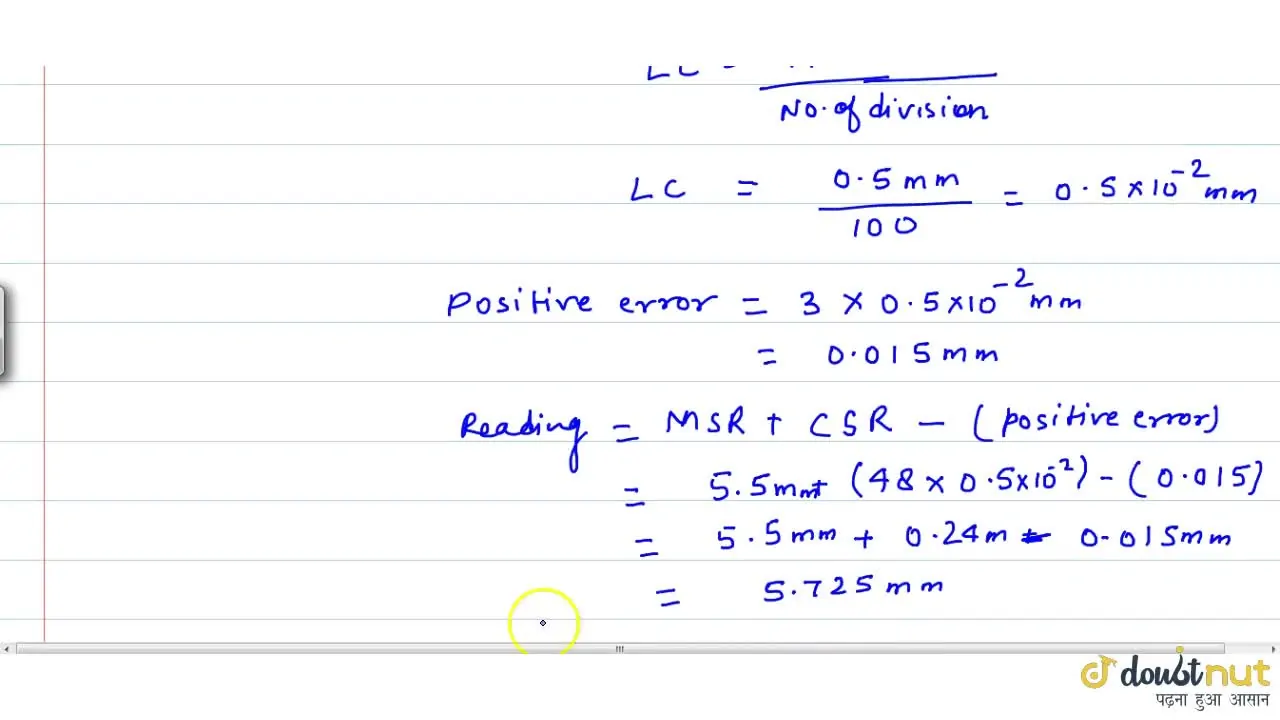 LC =
No. of division
LC = 0.5 mm / 100 = 0.5 × 10⁻² mm
Positive error = 3 × 0.5 × 10⁻² mm
= 0.015 mm
Reading = MSR + CSR – (positive error)
= 5.5 mm + (48 × 0.5 × 10⁻²) – (0.015)
= 5.5 mm + 0.24 m - 0.015 mm
= 5.725 mm
doubtnut
पढ़ना हुआ आसान